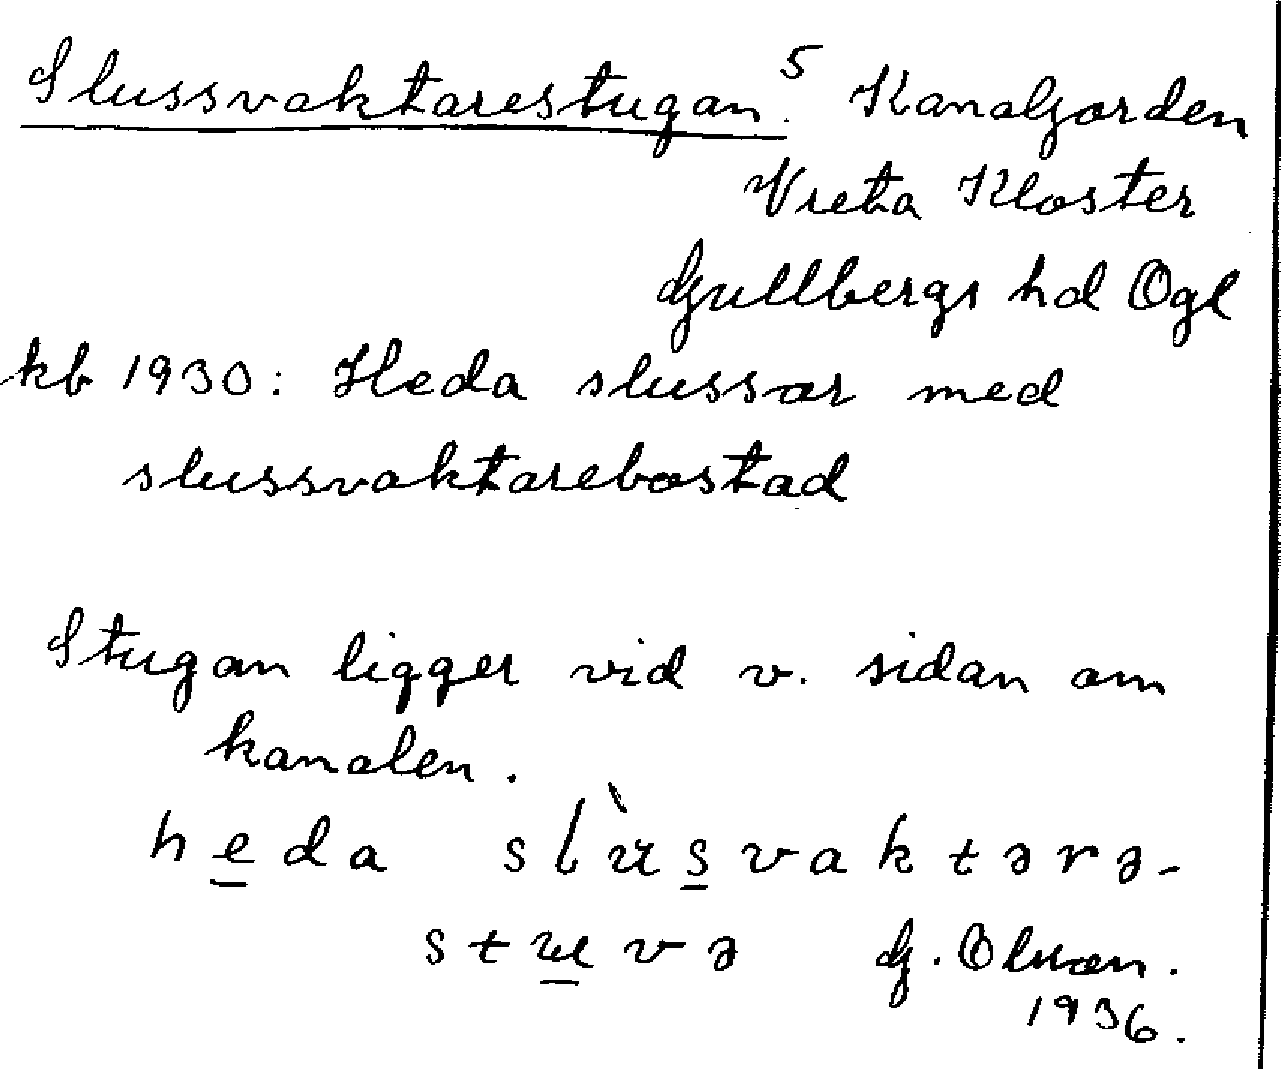 Slussvaktarestugan 5 Kanaljorden
Vreta Kloster
Gullbergs hd Ögl
kb 1930: Heda slussar med
slussvaktarebostad
Stugan ligger vid v. sidan om
kanalen.
heda slùsvaktərə-
stuvə G. Olson.
1936.